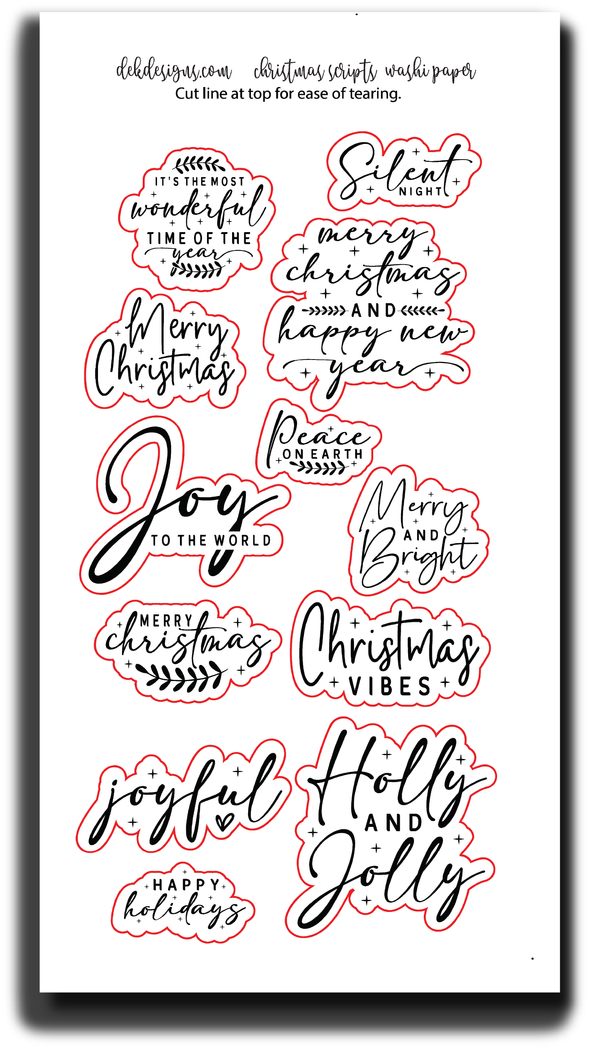 dekdesigns.com christmas scripts washi paper
Cut line at top for ease of tearing.
IT'S THE MOST
wonderful
TIME OF THE
year
Silent
NIGHT
merry
christmas
AND
happy new
year
Merry
Christmas
Peace
ON EARTH
Joy
TO THE WORLD
Merry
AND
Bright
MERRY
christmas
Christmas
VIBES
joyful
Holly
AND
Jolly
HAPPY
holidays